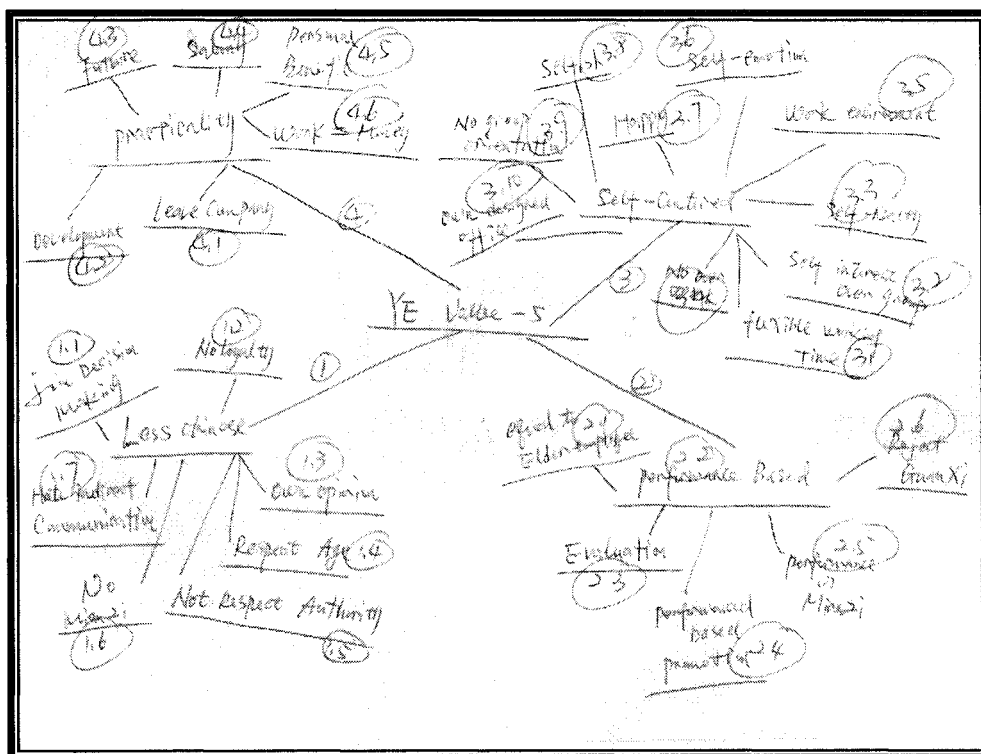 4.3
Future
4.4
Personal
4.5
Practicality
4.6
Work = Money
Leave Company
4.1
Development
4
Selfish 3.8
3.6
Self-emotion
3.5
Work enviroment
No group
orientation
3.9
Happy 2.7
3.10
own designed
office
Self-Centered
3.3
3
Self interest
over group
3.2
flexible working
Time 3.1
YE Value - 5
1.1
join Decision
Making
1.2
No loyalty
1
Less chinese
1.7
Hate Indirect
Communication
1.3
own opinion
Respect Age 1.4
No
Mianzi
1.6
Not Respect Authority
1.5
2
equal to 2.1
Elder employee
2.2
performance Based
2.6
Reject
GuanXi
Evaluation
2.3
2.5
performance
Mianzi
based
promotion 2.4